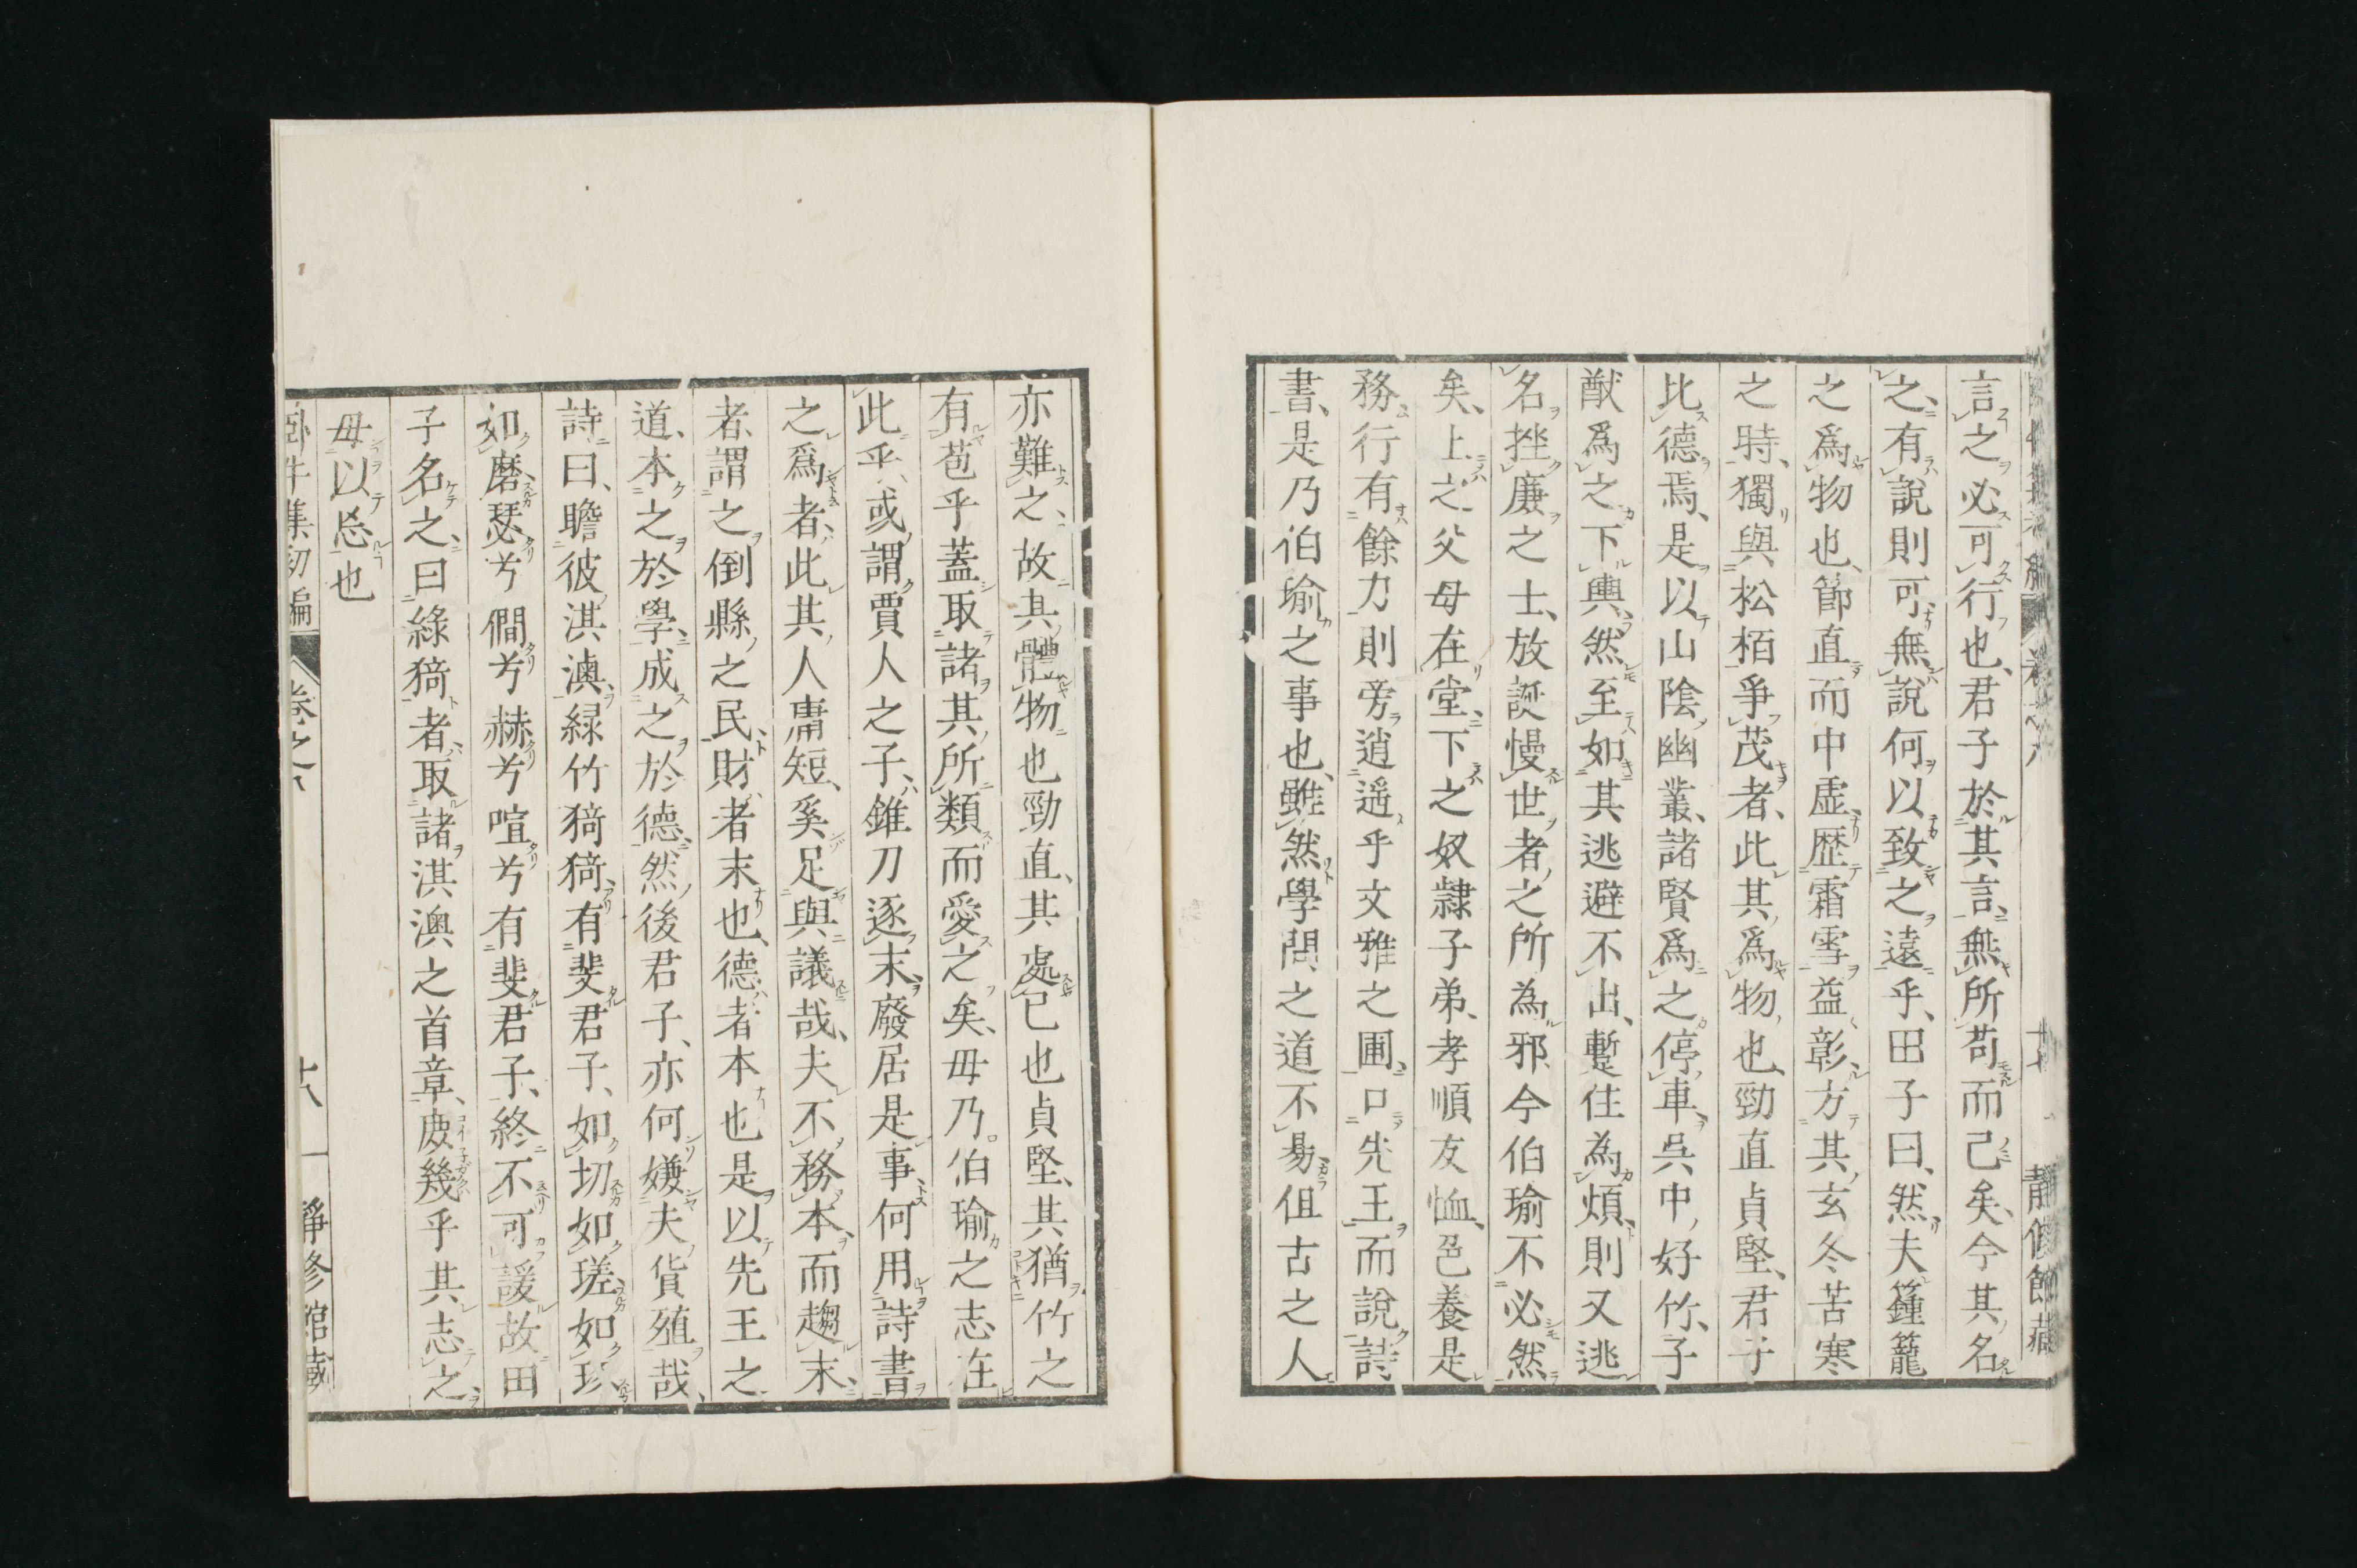 言之必可行也、君子於其言、無所苟而己矣、今其名
之、有說則可、無說何以致之遠乎、田子曰、然夫鍾籠
之爲物也、節直而中虛、歷霜雪益彰、方其玄冬苦寒
之時、獨與松栢爭茂者、此其爲物也、勁直貞堅、君子
比德焉、是以山陰幽叢、諸賢爲之停車、吳中好竹、子
猷爲之下輿、然至如其逃避不出、蹔住為煩、則又逃
名挫廉之士、放誕慢世者之所為邪、今伯瑜不必然
矣、上之父母在堂、下之奴隸子弟、孝順友恤、色養是
務、行有餘力則旁逍遥乎文雅之圃、口先王而說詩
書、是乃伯瑜之事也、雖然學問之道不易、伹古之人
亦難之、故其體物也勁直、其處己也貞堅、其猶竹之
有苞乎蓋取諸其所類而愛之矣、毋乃伯瑜之志在
此乎、或謂賈人之子、錐刀逐末、廢居是事、何用詩書
之爲者、此其人庸短、奚足與議哉、夫不務本、而趨末
者、謂之倒縣之民、財者末也、德者本也是以先王之
道、本之於學、成之於德、然後君子、亦何嫌夫貨殖哉、
詩曰、瞻彼淇澳、緑竹猗猗、有斐君子、如切如瑳、如琢
如磨、瑟兮僩兮赫兮喧兮有斐君子、終不可諼故田
子名之、曰綠猗者、取諸淇澳之首章、庶幾乎其志之、
毋以忘也
卧牛集初編 卷之六 十八 靜修館藏
十七 靜修館藏